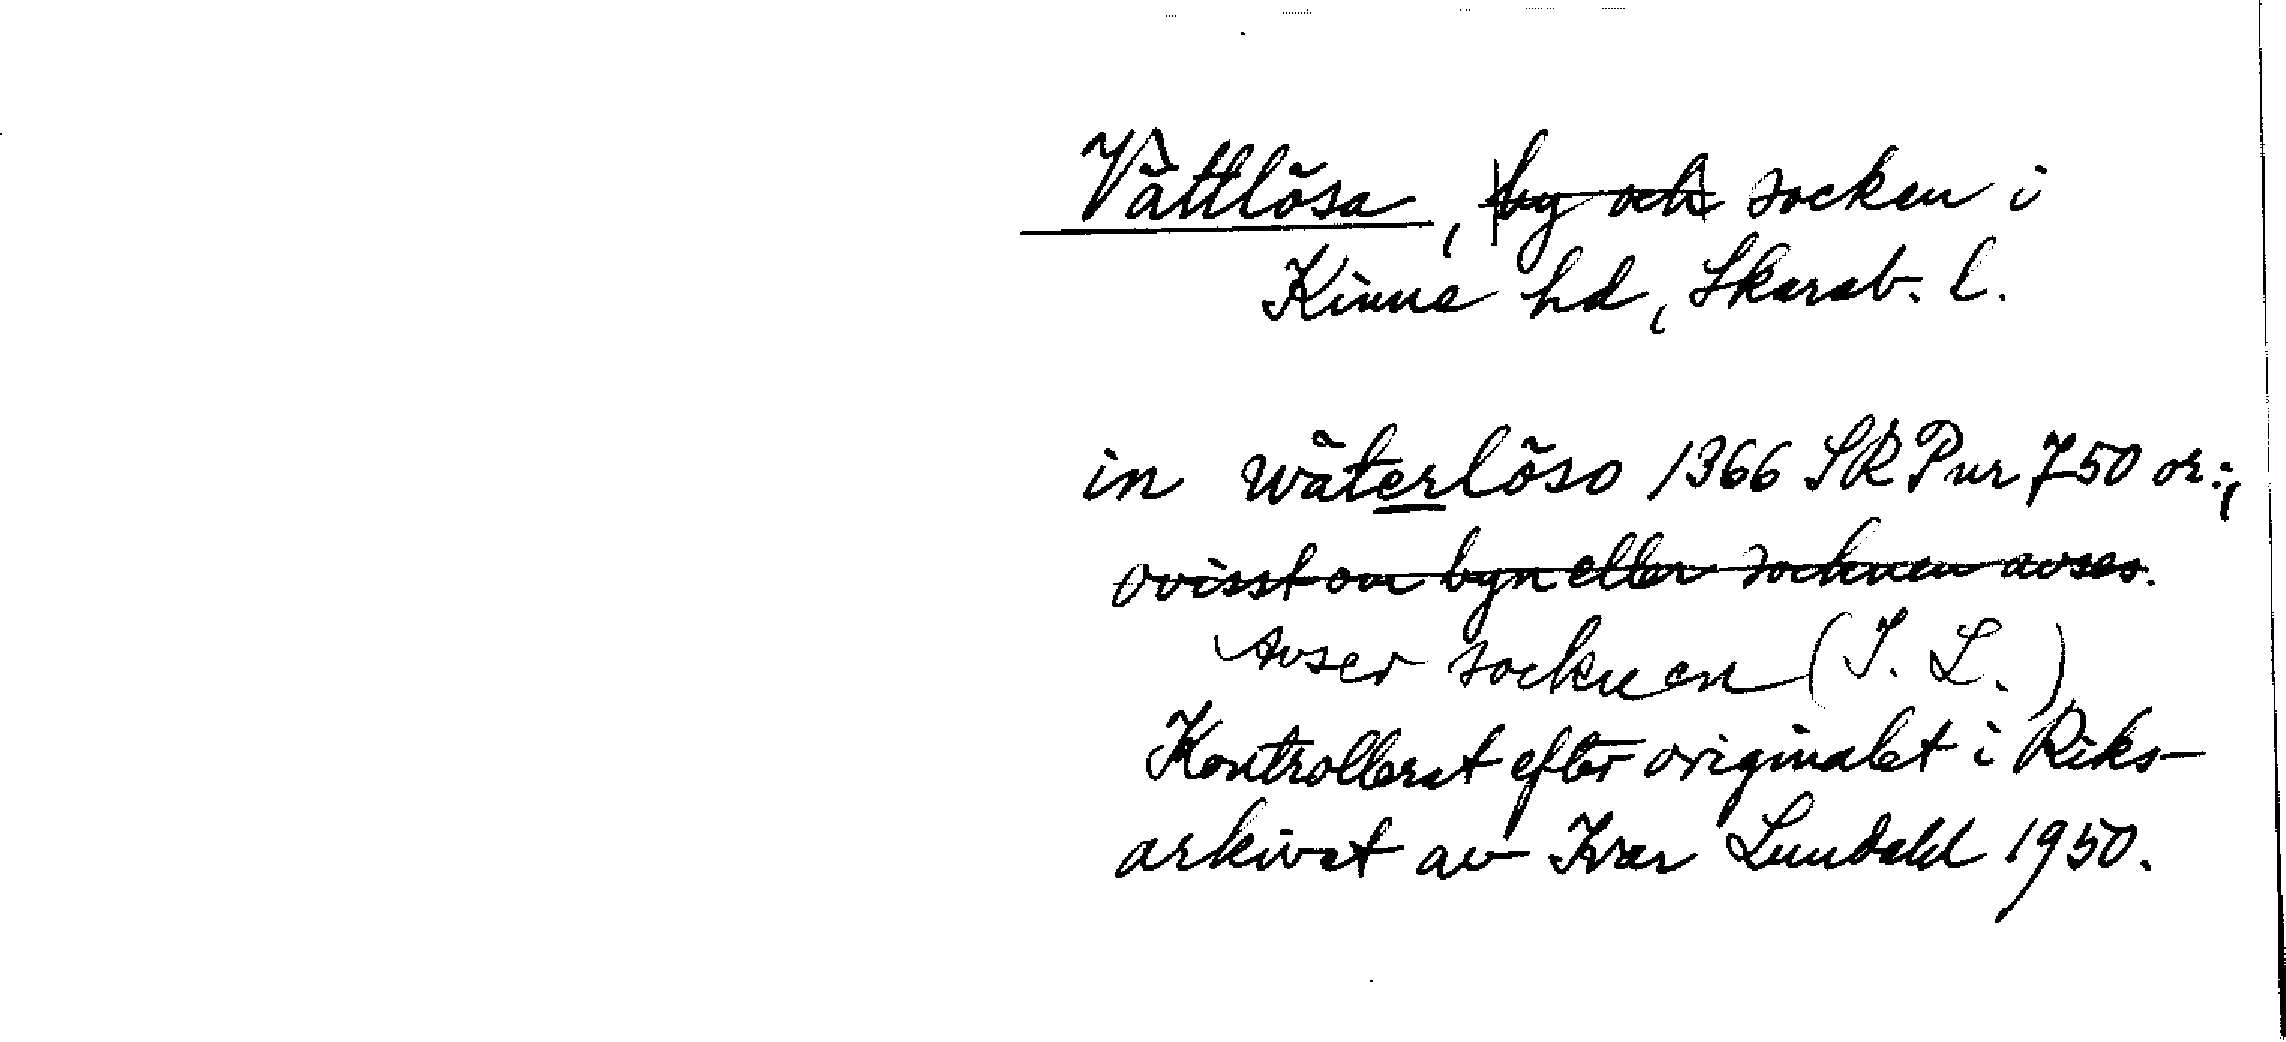 Vättlösa, by och socken i
Kinne hd, Skarab. l.
in wäterlöso 1366 SRPnr 750 or.;
ovisst om byn eller socknen avses.
Avser socknen (I. L.)
Kontrollerat efter originalet i Riks-
arkivet av Ivar Lundahl 1950.